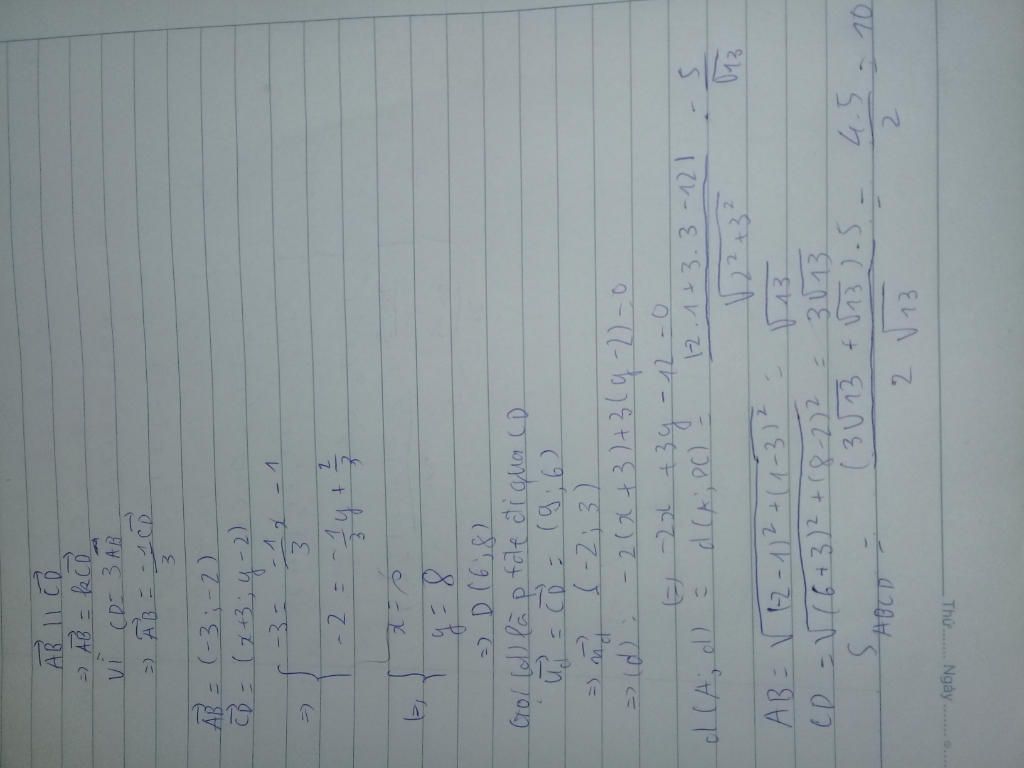 AB || CD
=> AB = kCD
Vì CD = 3AB
=> AB = -1/3 CD
AB = (-3; -2)
CD = (x+3; y-2)
=> { -3 = -1/3 x - 1
-2 = -1/3 y + 2/3
(=) { x = 6
y = 8
=> D(6; 8)
Gọi (d) là ptđt đi qua CD
u_d = CD = (9; 6)
=> n_d (-2; 3)
=> (d): -2(x+3)+3(y-2)=0
(=) -2x+3y-12=0
d(A; d) = d(A; DC) = |2.1+3.3-12| / √(2²+3²) = 5/√13
AB = √((2-1)²+(1-3)²) = √13
CD = √((6+3)²+(8-2)²) = 3√13
S ABCD = (3√13 + √13).5 / 2√13 = 4.5/2 = 10
Thứ Ngày